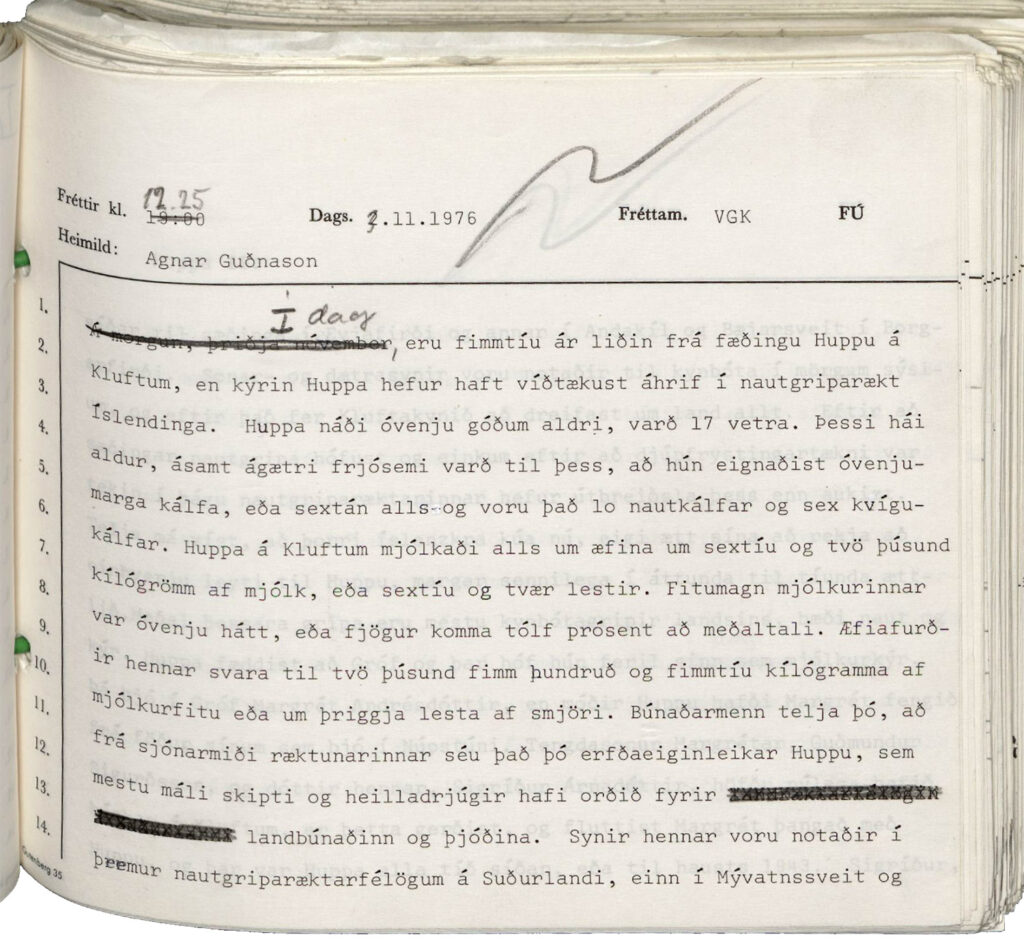 Fréttir kl. 12.25
19:00
Dags. 3.11.1976
Fréttam. VGK
FÚ
Heimild: Agnar Guðnason
1.
Í dag
2. Á morgun, þriðja nóvember, eru fimmtíu ár liðin frá fæðingu Huppu á
3. Kluftum, en kýrin Huppa hefur haft víðtækust áhrif í nautgriparækt
4. Íslendinga. Huppa náði óvenju góðum aldri, varð 17 vetra. Þessi hái
5. aldur, ásamt ágætri frjósemi varð til þess, að hún eignaðist óvenju-
6. marga kálfa, eða sextán alls og voru það lo nautkálfar og sex kvígu-
7. kálfar. Huppa á Kluftum mjólkaði alls um æfina um sextíu og tvö þúsund
8. kílógrömm af mjólk, eða sextíu og tvær lestir. Fitumagn mjólkurinnar
9. var óvenju hátt, eða fjögur komma tólf prósent að meðaltali. Æfiafurð-
10. ir hennar svara til tvö þúsund fimm hundruð og fimmtíu kílógramma af
11. mjólkurfitu eða um þriggja lesta af smjöri. Búnaðarmenn telja þó, að
12. frá sjónarmiði ræktunarinnar séu það þó erfðaeiginleikar Huppu, sem
13. mestu máli skipti og heilladrjúgir hafi orðið fyrir
14. landbúnaðinn og þjóðina. Synir hennar voru notaðir í
þremur nautgriparæktarfélögum á Suðurlandi, einn í Mývatnssveit og
Gutenberg 35